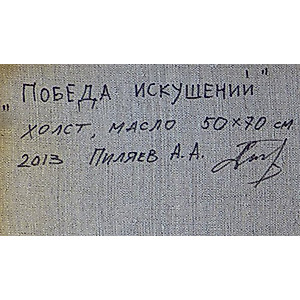 "ПОБЕДА ИСКУШЕНИЙ"
ХОЛСТ, МАСЛО 50×70 см
2013 ПИЛЯЕВ А.А.